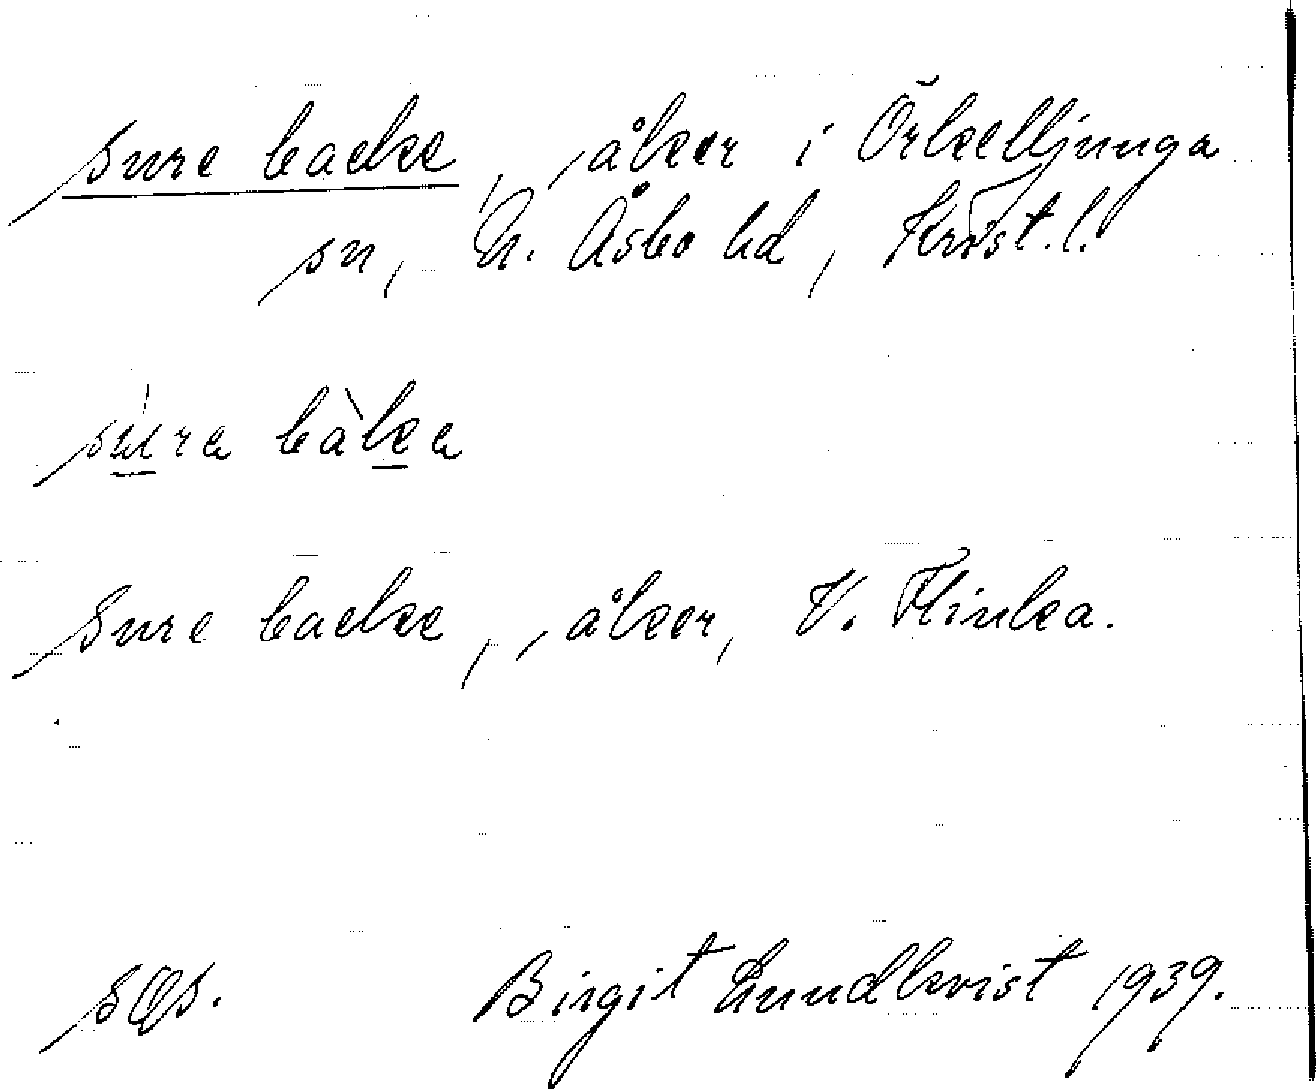 Sure backe, åker i Örkelljunga
sn, N. Åsbo hd, Krist. l.
sura bàka
Sure backe, åker, V. Flinka.
SOS. Birgit Lundkvist 1939.